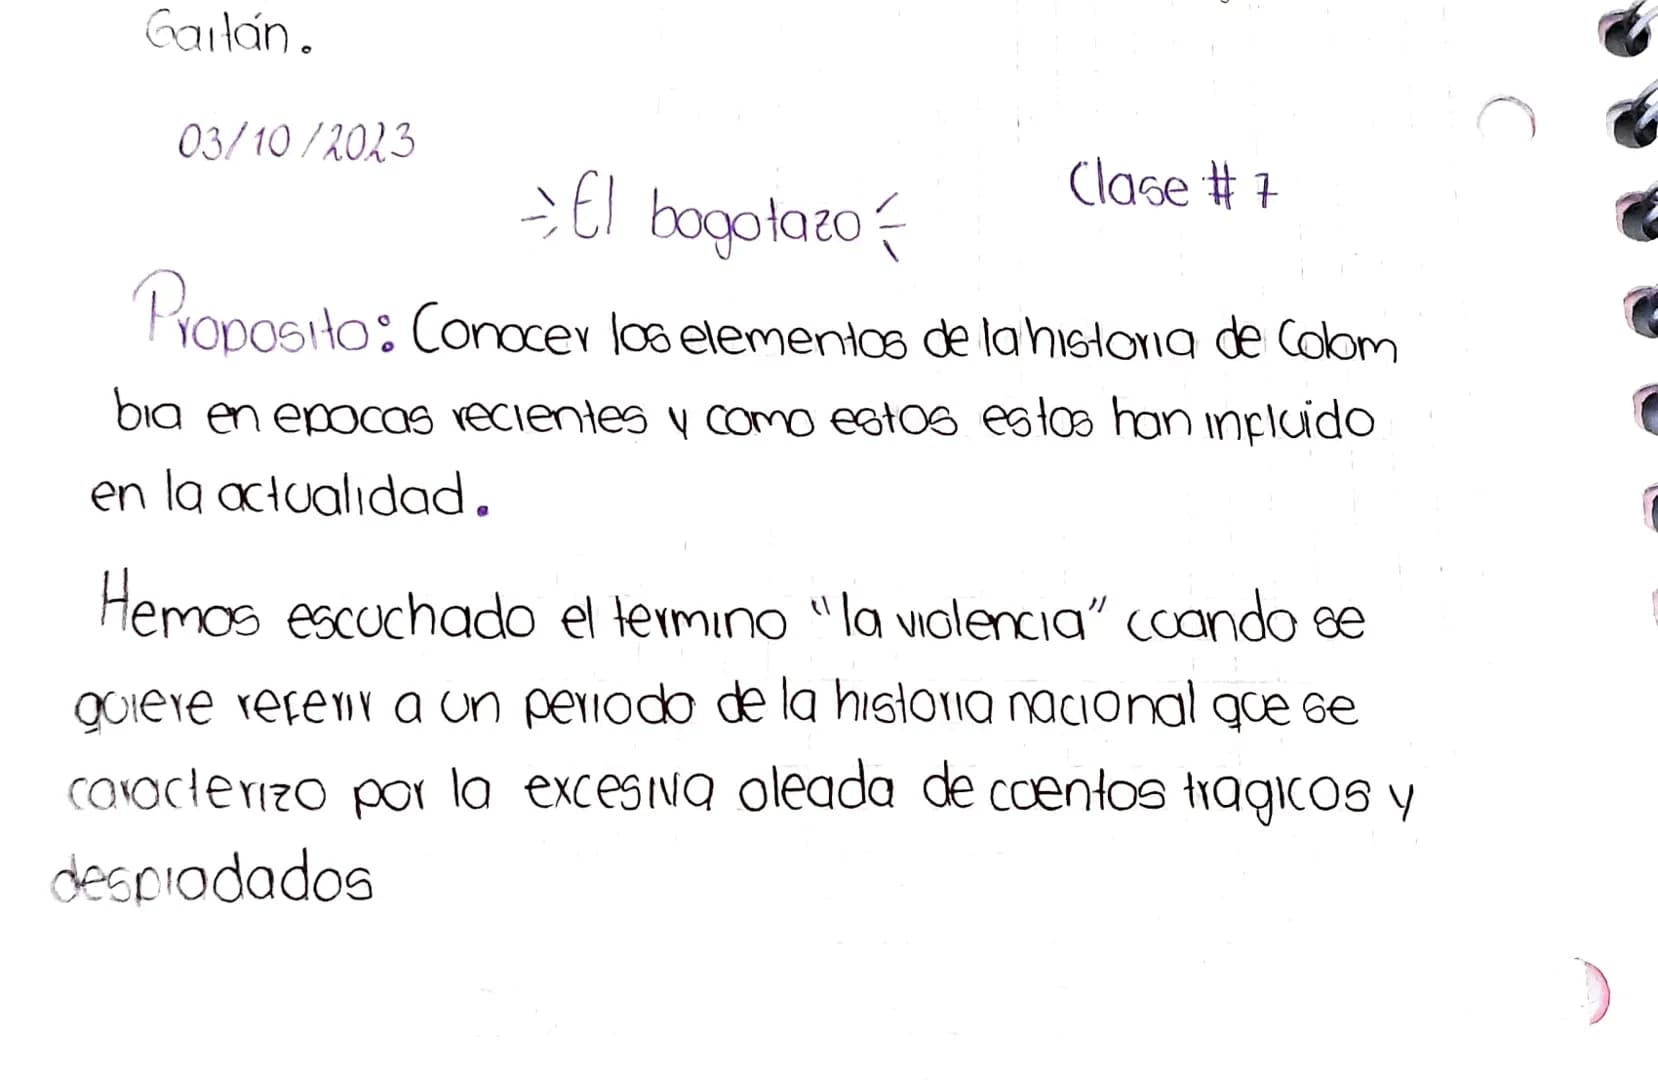 Gaitán.
03/10/2023
Clase # 7
El bogotazo
Proposito: Conocer los elementos de la historia de Colom
bia en epocas recientes y como estos estos han influido
en la actualidad.
Hemos escuchado el termino "la violencia" cuando se
quiere referir a un periodo de la historia nacional que se
caracterizo por la excesiva oleada de cuentos tragicos y
despiadados